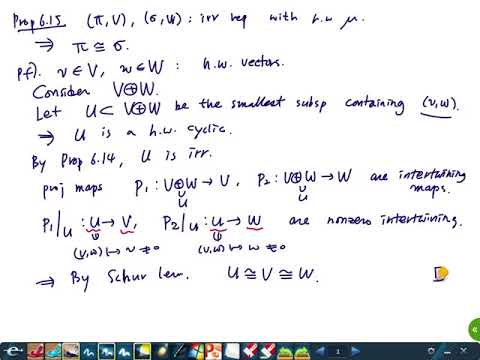 Prop 6.15 (π, V), (σ, W) : irr rep with h.w μ.
⇒ π ≅ σ.
pf). v ∈ V, w ∈ W : h.w. vectors.
Consider V⊕W.
Let U ⊂ V⊕W be the smallest subsp containing (v, w).
⇒ U is a h.w. cyclic.
By Prop 6.14, U is irr.
proj maps P₁ : V⊕W → V, P₂ : V⊕W → W are intertwining maps.
∪ ∪
U U
P₁|_U : U → V, P₂|_U : U → W are nonzero intertwining.
(v,w) ↦ v ≠ 0 (v,w) ↦ w ≠ 0
⇒ By Schur lem. U ≅ V ≅ W.
1